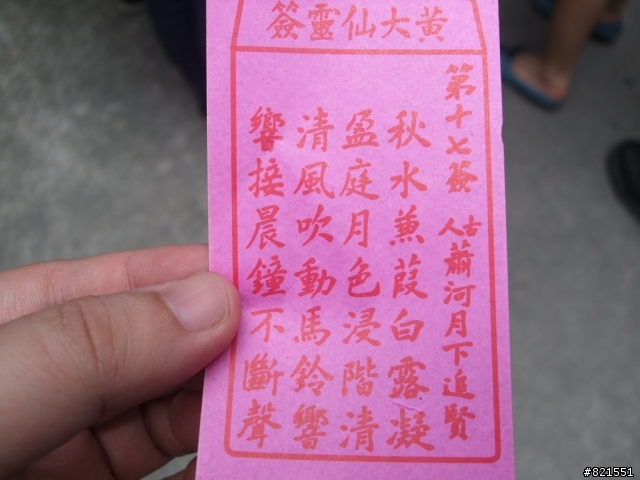 黃大仙靈簽
第十七簽 古人 蕭河月下追賢
秋水蒹葭白露凝
盈庭月色浸階清
清風吹動馬鈴響
響接晨鐘不斷聲
#821551